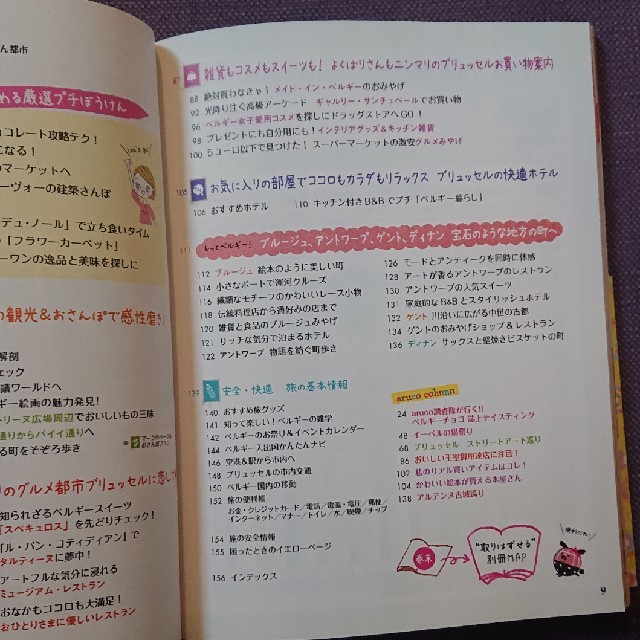 ん都市
める厳選プチぼうけん
コレート攻略テク!
になる!
のマーケットへ
ーヴォーの建築さんぽ
デュ・ノール」で立ち食いタイム
の「フラワーカーペット」
ーワンの逸品と美味を探しに
の観光&おさんぽで感性磨き!
解剖
ェック
議ワールドへ
ギー絵画の魅力発見!
トリーヌ広場周辺でおいしいもの三昧
通りからバイイ通りへ
る町をそぞろ歩き
りのグルメ都市ブリュッセルに恋し
知られざるベルギースイーツ
「スペキュロス」を先どりチェック!
「ル・パン・コティディアン」で
タルティーヌに夢中!
アートフルな気分に浸れる
ミュージアム・レストラン
おなかもココロも大満足!
おひとりさまに優しいレストラン
87 雑貨もコスメもスイーツも! よくばりさんもニンマリのブリュッセルお買い物案内
88 絶対買わなきゃ! メイド・イン・ベルギーのおみやげ
92 光降り注ぐ高級アーケード ギャルリー・サンチュベールでお買い物
96 ベルギー女子愛用コスメを探しにドラッグストアへGO!
98 プレゼントにも自分用にも! インテリアグッズ&キッチン雑貨
100 5ユーロ以下で見つけた! スーパーマーケットの激安グルメみやげ
105 お気に入りの部屋でココロもカラダもリラックス ブリュッセルの快適ホテル
106 おすすめホテル
110 キッチン付きB&Bでプチ「ベルギー暮らし」
111 もっとベルギー! ブルージュ、アントワープ、ゲント、ディナン 宝石のような地方の町へ
112 ブルージュ 絵本のように美しい町
114 小さなボートで運河クルーズ
116 繊細なモチーフのかわいいレース小物
118 伝統料理店から通好みの店まで
120 雑貨と食品のブルージュみやげ
121 リッチな気分で泊まるホテル
122 アントワープ 物語を紡ぐ町歩き
126 モードとアンティークを同時に体感
128 アートが香るアントワープのレストラン
130 アントワープの人気スイーツ
131 家庭的なB&Bとスタイリッシュホテル
132 ゲント 川沿いに広がる中世の古都
134 ゲントのおみやげショップ&レストラン
136 ディナン サックスと堅焼きビスケットの町
139 安全・快適 旅の基本情報
140 おすすめ旅グッズ
141 知って楽しい!ベルギーの雑学
142 ベルギーのお祭り&イベントカレンダー
144 ベルギー入出国かんたんナビ
146 空港&駅から市内へ
148 ブリュッセルの市内交通
150 ベルギー国内の移動
152 旅の便利帳
お金・クレジットカード/電話/電源・電圧/郵便/
インターネット/マナー/トイレ/水/喫煙/チップ
154 旅の安全情報
155 困ったときのイエローページ
156 インデックス
aruco column
24 aruco調査隊が行く!!
ベルギーチョコ 誌上テイスティング
48 イーペルの猫祭り
68 ブリュッセル ストリートアート巡り
86 おいしい王室御用達店に注目!
102 私のリアル買いアイテムはコレ!
104 かわいい絵本が買える本屋さん
138 アルデンヌ古城巡り
巻末
"取りはずせる"
別冊MAP
便利だわ!
9